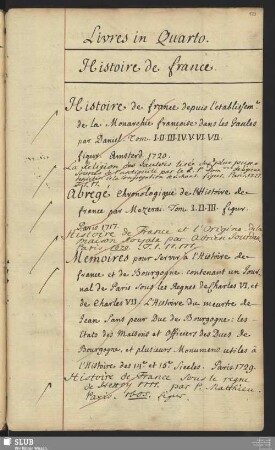 Livres in Quarto.
Histoire de france.
Histoire de france depuis l'etablissem.
de la Monarchie françoise dans les Gaules
par Daniel, Tom. I·II·III·IV·V·VI·VII.
figur. Amsterd. 1720.
La Religion des Gaulois tirée des plus pures
Sources de l'antiquité par le R. P. Dom
Abregé Chronologique de l'Histoire de
france par Mezeray. Tom. I.II.III. figur.
Paris 1717.
Histoire de France et l'Origine de la
maison Royale par Adrien Jourdan
Paris T. I. II. III.
Memoires pour Servir à l'Histoire de
france et de Bourgogne: contenant un Jour-
nal de Paris Sous les Regnes de Charles VI. et
de Charles VII. L'Histoire du meurtre de
Jean Sans peur Duc de Bourgogne: les
Etats des Maisons et Officiers des Ducs de
Bourgogne, et plusieurs Monumens utiles à
l'Histoire des 14.e et 15.e Siecles. Paris 1729.
Histoire de France Sous le regne
de Henry IIII. par P. Matthieu.
Paris. 1605. figur.
SLUB
Wir führen Wissen.